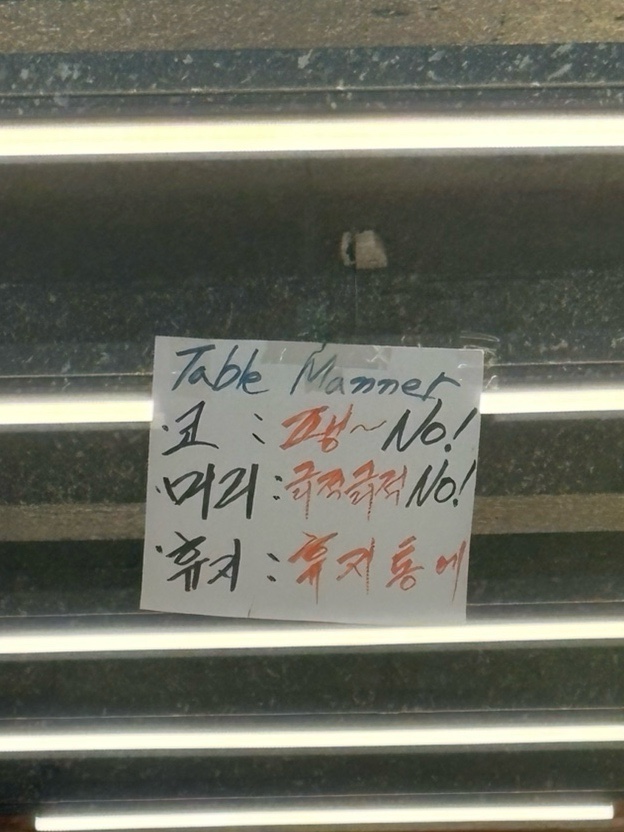 Table Manner
·코 : 팽~ No!
·머리 : 긁적긁적 No!
·휴지 : 휴지통에